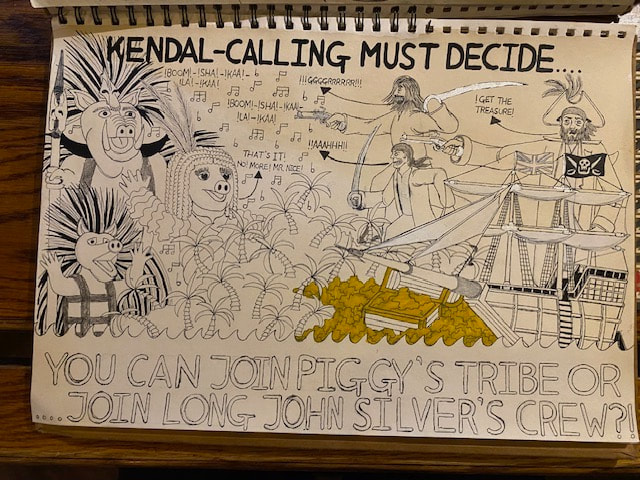 KENDAL-CALLING MUST DECIDE....
!BOOM!-!SHA!-!KAA!-
!LA!-!KAA!
!BOOM!-!SHA!-!KAA!
!LA!-!KAA!
THAT'S IT!
NO MORE! MR. NICE!
!!!GGGGRRRRRR!!!
!!AAAHHH!!
!GET THE
TREASURE!
YOU CAN JOIN PIGGY'S TRIBE OR
.... JOIN LONG JOHN SILVER'S CREW?!